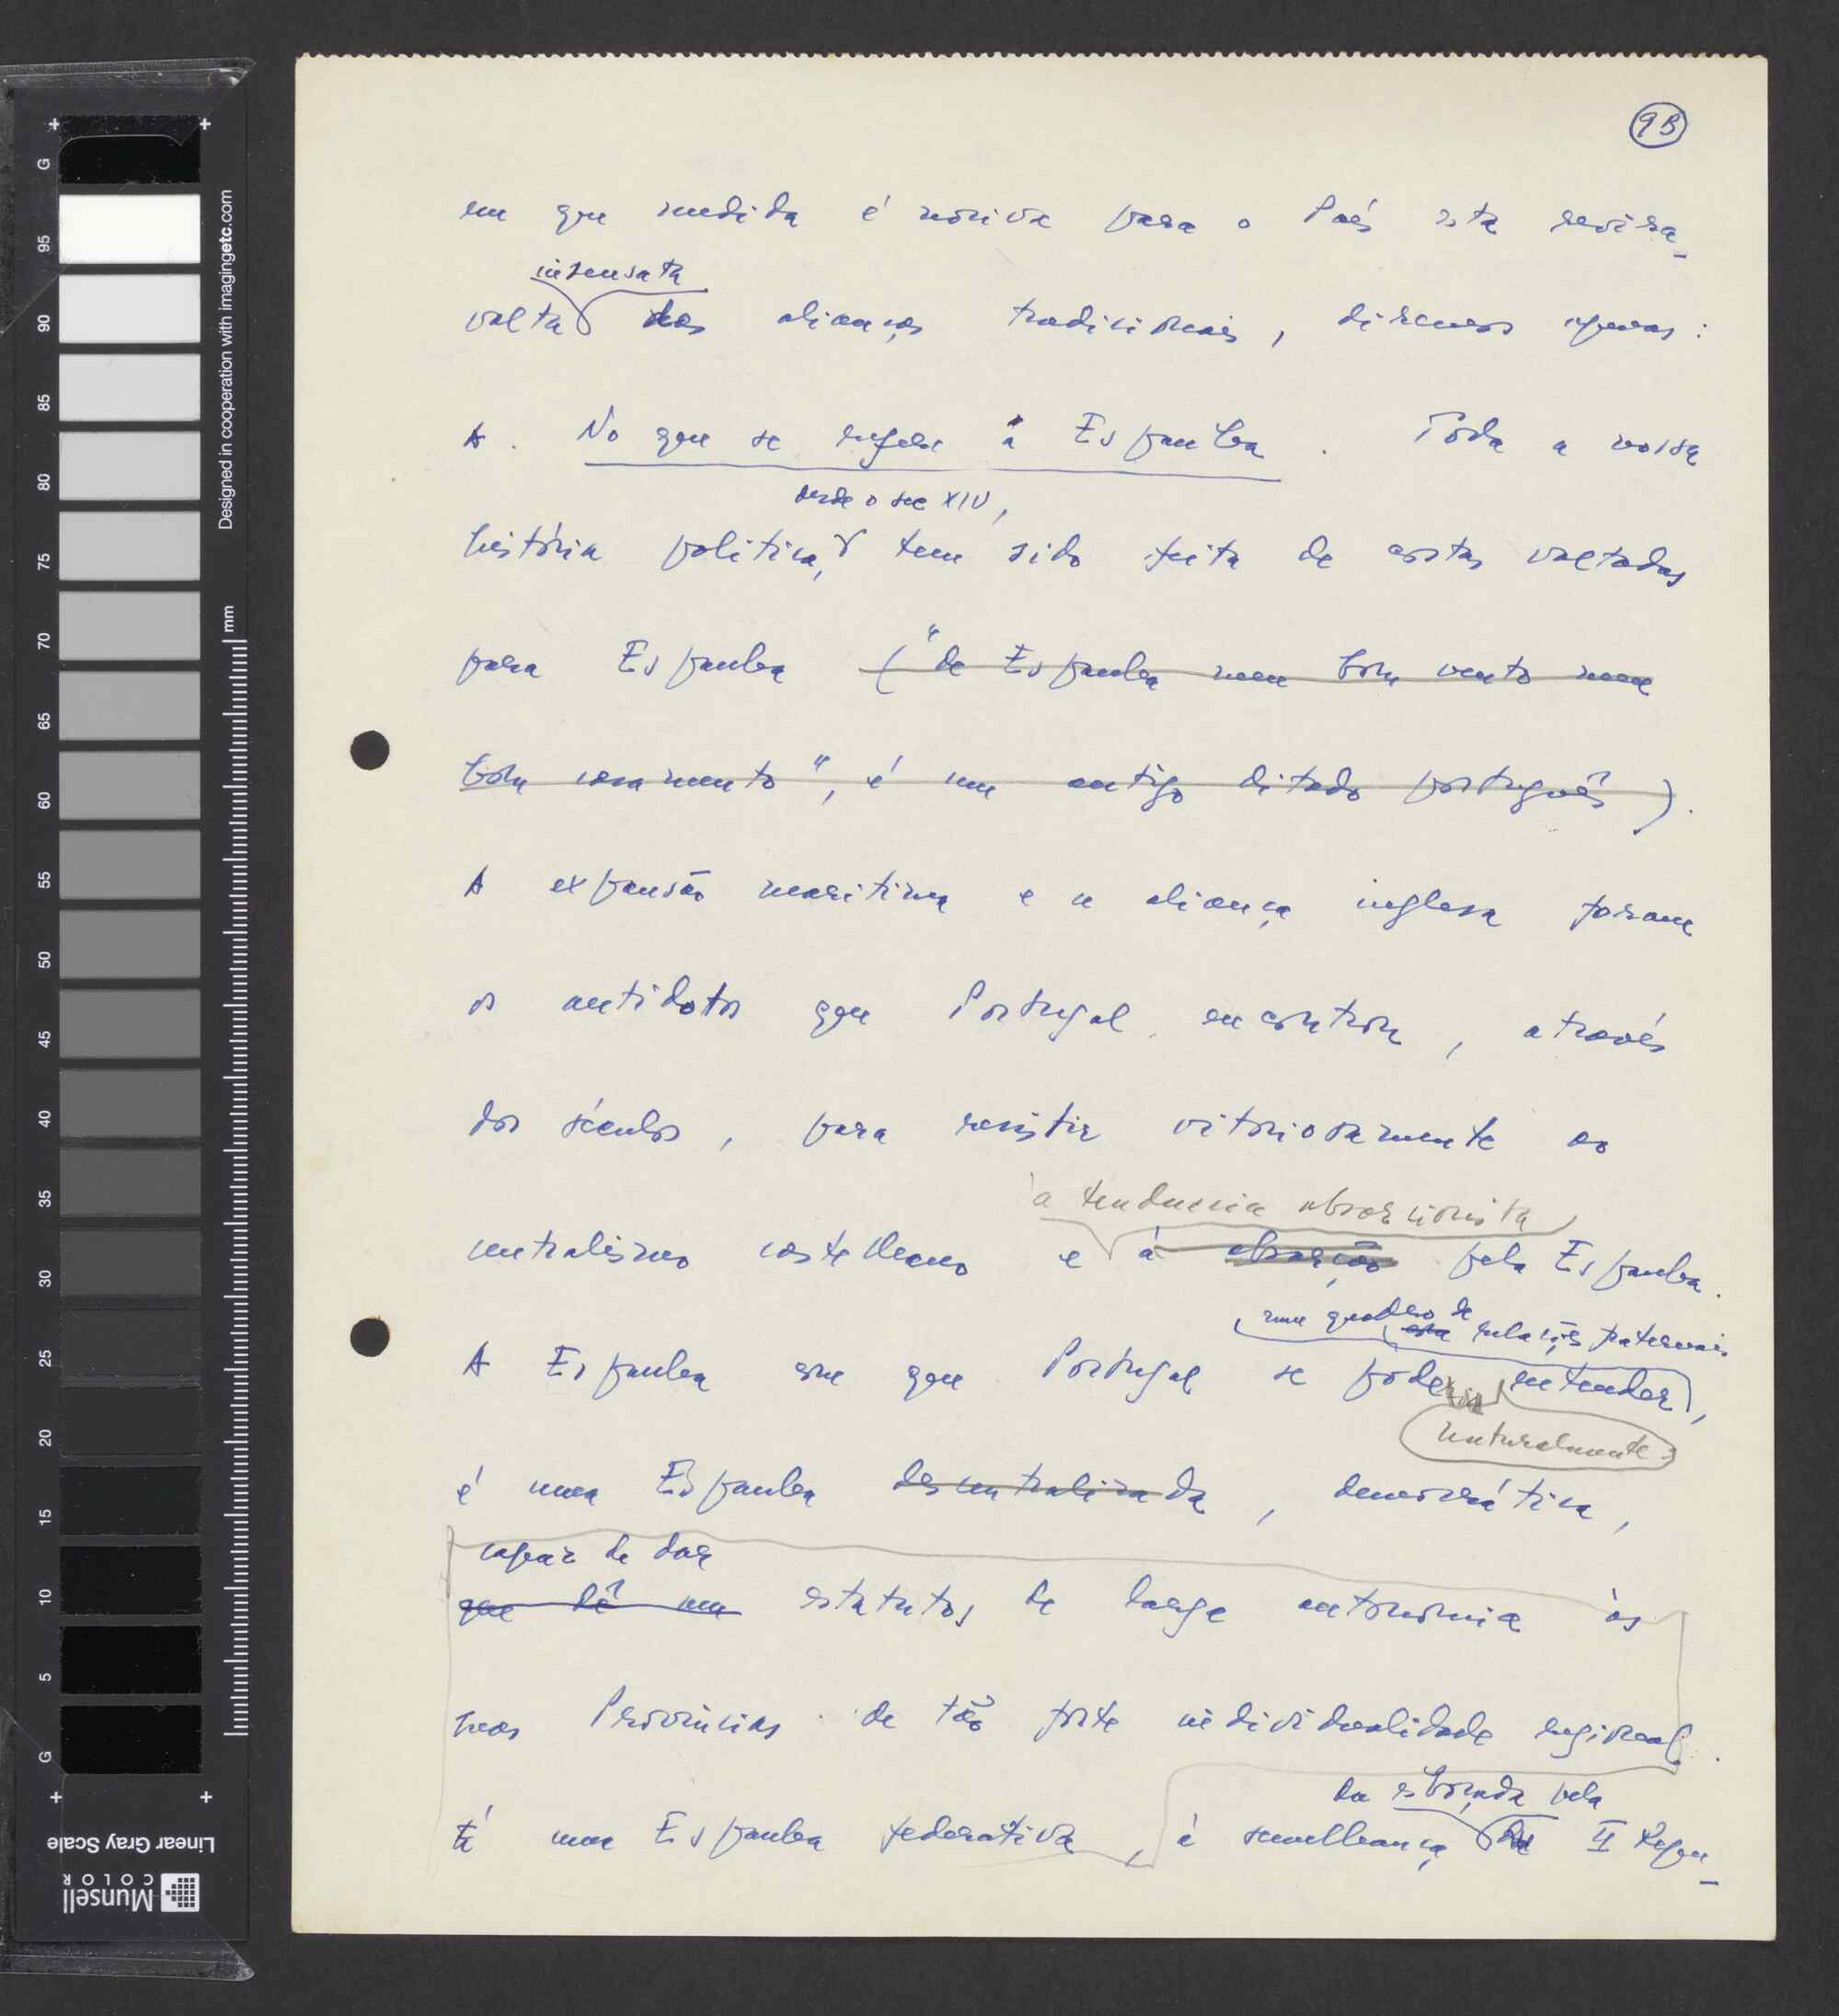 9B
em que medida é nociva para o País esta revira-
insensata
volta das alianças tradicionais, diremos apenas:
A. No que se refere à Espanha. Toda a nossa
desde o sec XIV,
história politica, tem sido feita de costas voltadas
para Espanha ("de Espanha nem bom vento nem
bom casamento", é um antigo ditado português).
A expansão maritima e a aliança inglesa foram
os antidotos que Portugal encontrou, através
dos séculos, para resistir vitoriosamente ao
à tendencia absorcionista
centralismo castelhano e à absorção pela Espanha.
num quadro de relações fraternais
A Espanha com que Portugal se pode entender,
naturalmente
é uma Espanha descentralizada, democrática,
capaz de dar
que dê um estatutos de larga autonomia às
suas Provincias de tão forte individualidade regional.
É uma Espanha federativa, à semelhança da II Repu-
da esboçada pela
G
95
90
85
80
75
70
65
60
55
50
45
40
35
30
25
20
15
10
5
G
mm
Designed in cooperation with imagingetc.com
Linear Gray Scale
Munsell
COLOR